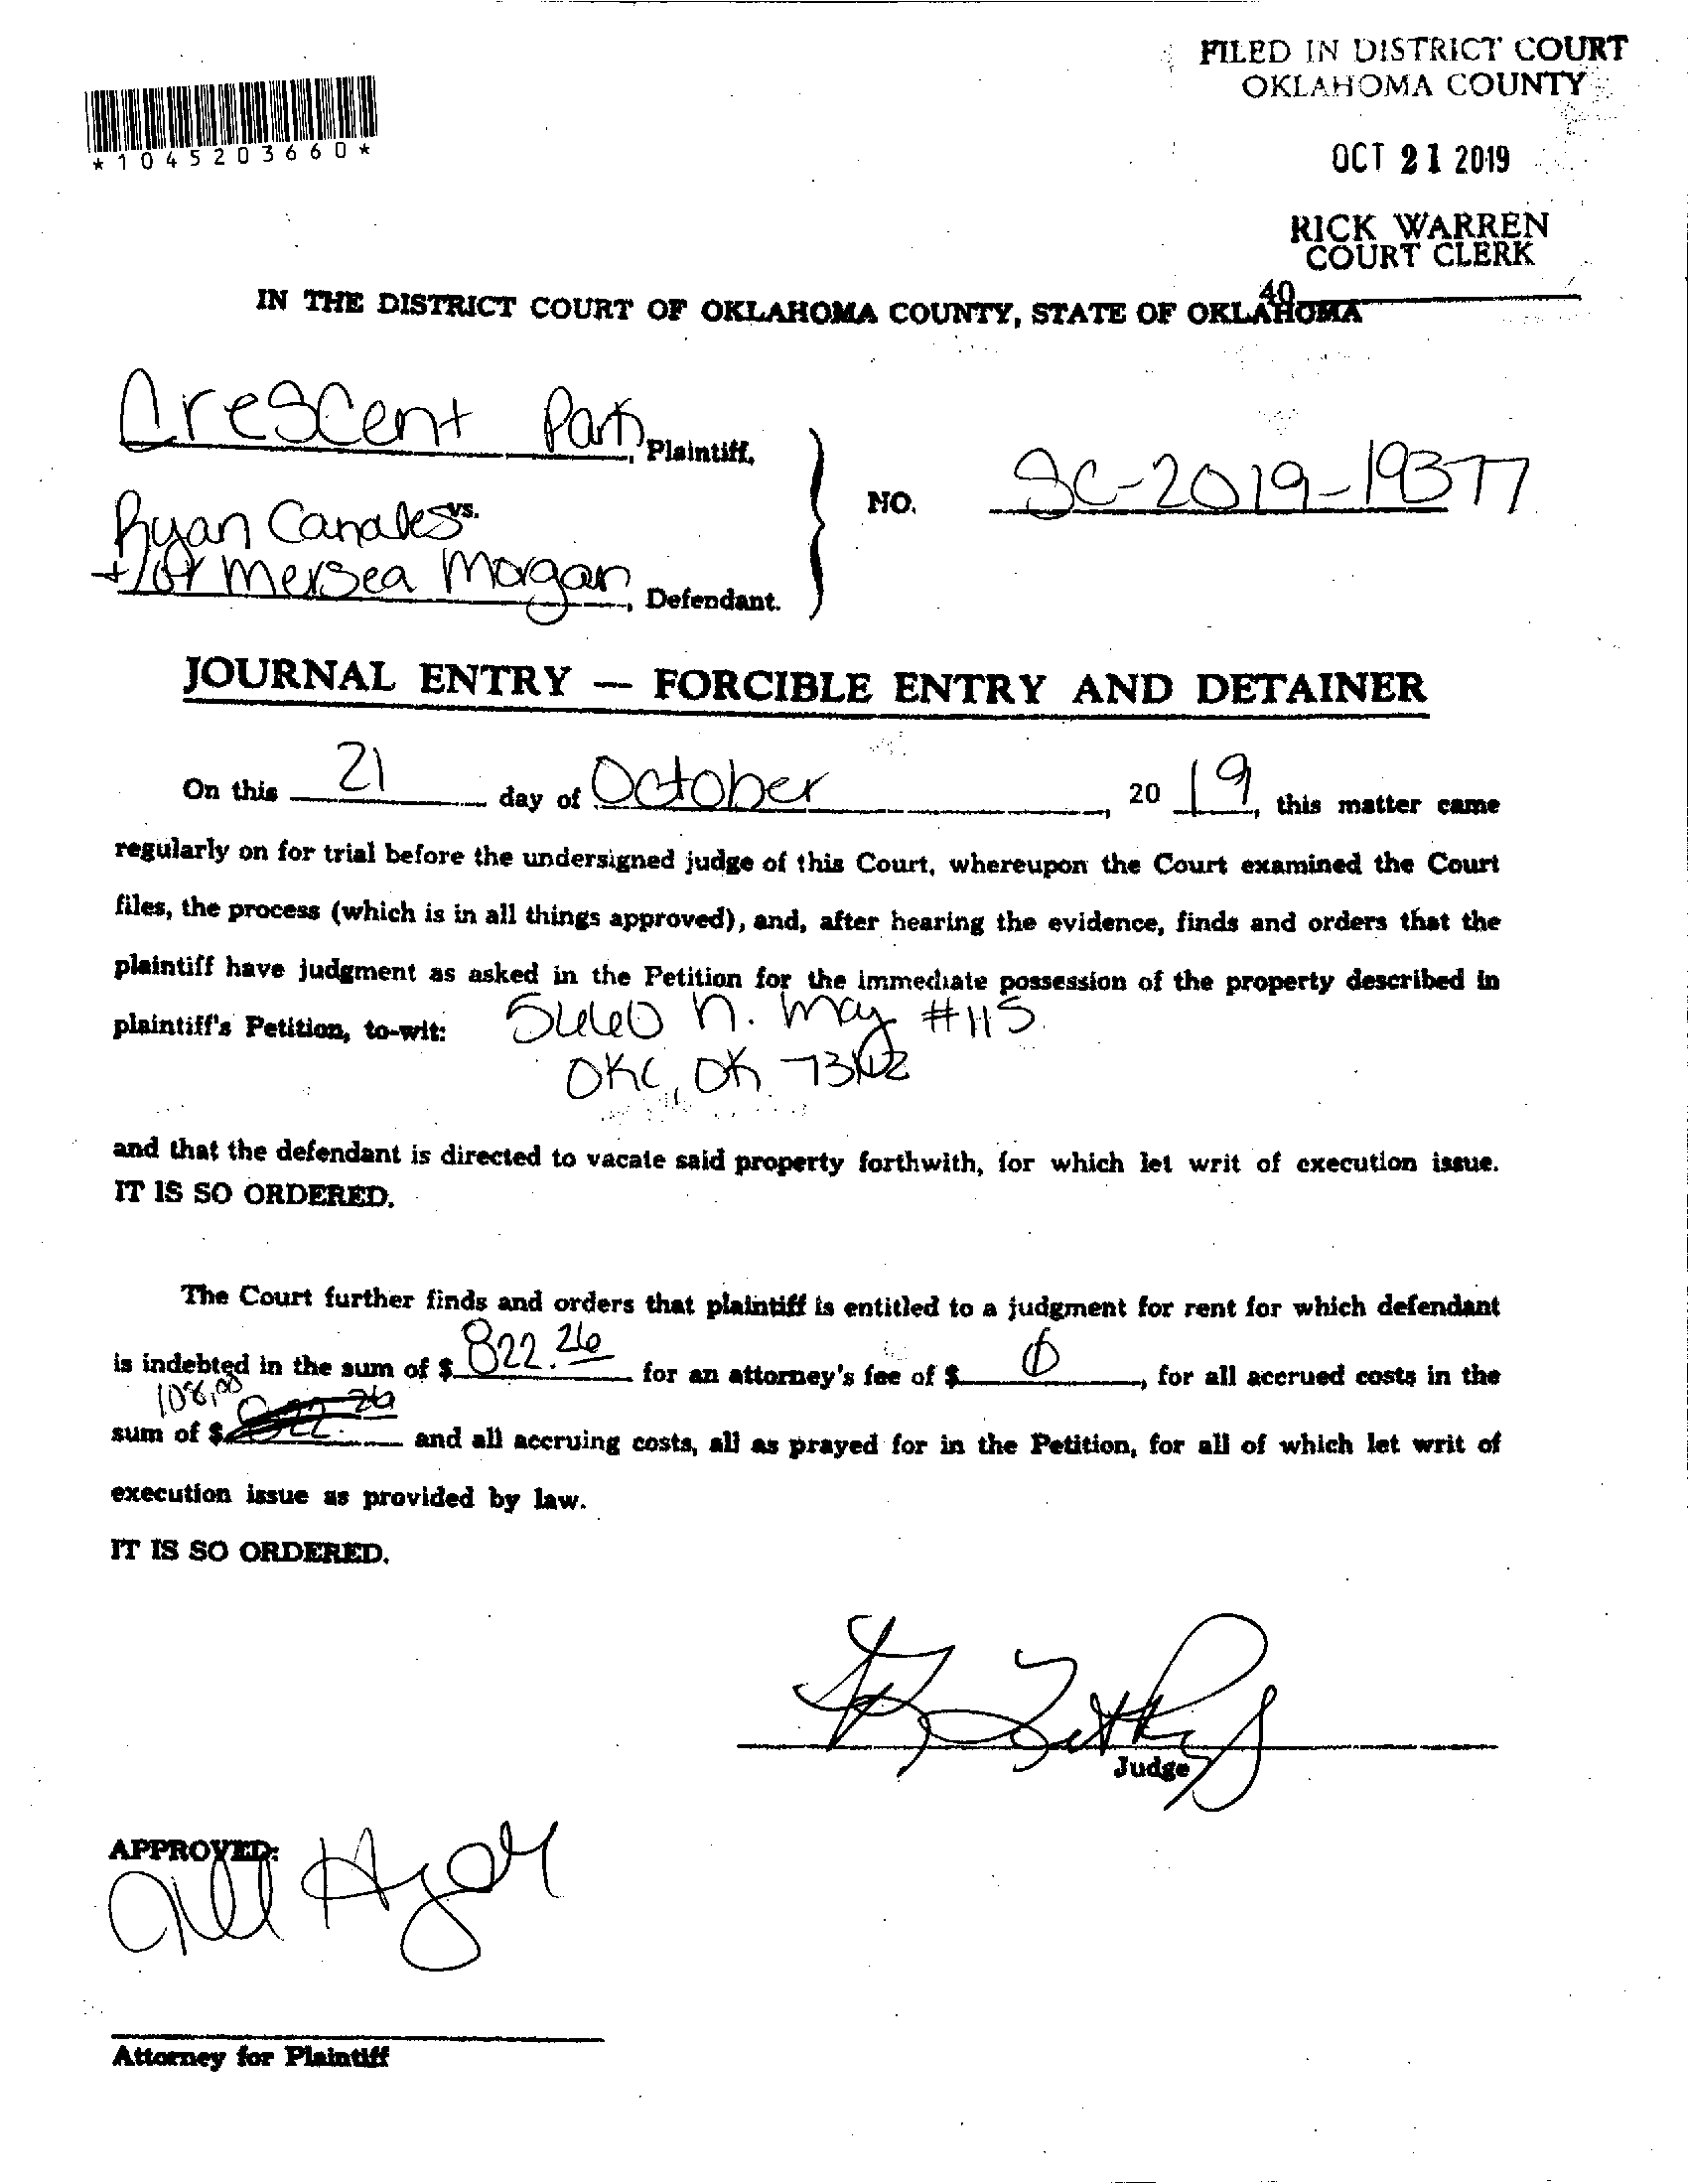 FILED IN DISTRICT COURT
OKLAHOMA COUNTY
*1045203660*
OCT 21 2019
RICK WARREN
COURT CLERK
40
IN THE DISTRICT COURT OF OKLAHOMA COUNTY, STATE OF OKLAHOMA
Crescent Park, Plaintiff,
vs.
NO. SC-2019-19377
Ryan Canales
+/or Mersea Morgan, Defendant.
JOURNAL ENTRY — FORCIBLE ENTRY AND DETAINER
On this 21 day of October, 2019, this matter came
regularly on for trial before the undersigned judge of this Court, whereupon the Court examined the Court
files, the process (which is in all things approved), and, after hearing the evidence, finds and orders that the
plaintiff have judgment as asked in the Petition for the immediate possession of the property described in
plaintiff's Petition, to-wit: N. May #115
OKC, OK
and that the defendant is directed to vacate said property forthwith, for which let writ of execution issue.
IT IS SO ORDERED.
The Court further finds and orders that plaintiff is entitled to a judgment for rent for which defendant
is indebted in the sum of $ 822.26 for an attorney's fee of $ 0, for all accrued costs in the
108.00
sum of $ 822.26 and all accruing costs, all as prayed for in the Petition, for all of which let writ of
execution issue as provided by law.
IT IS SO ORDERED.
Judge
APPROVED:
Attorney for Plaintiff